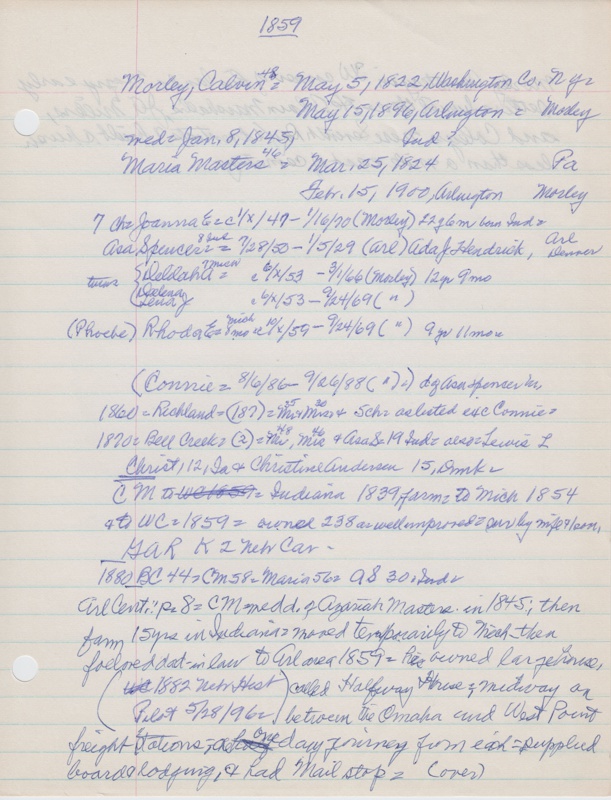 1859
Morley, Calvin 48 = May 5, 1822, Washington Co. N.Y. =
May 15, 1896, Arlington = Morley
med = Jan. 8, 1845, Ind =
Maria Masters 46 = Mar. 25, 1824 Pa
Febr. 15, 1900, Arlington Morley
7 ch = Joanna E = c 1/x/47 - 1/16/70 (Morley) 22 y 6 m born Ind =
Asa Spencer = 7/28/50 - 1/5/29 (Arl) Ada J. Hendrick, Arl Denver
twins { Delilah = mich c 6/x/53 - 3/1/66 (Morley) 12 yr 9 mo
c 6/x/53 - 9/24/69 ( " )
(Phoebe) Rhoda E = mich 10/x/59 - 9/24/69 ( " ) 9 yr 11 mo =
(Connie = 8/6/86 - 9/26/98 ( " ) ) d of Asa Spencer
1860 = Richland = (187) = & 5 ch = as listed exc Connie =
1870 = Bell Creek = (2) = Mr 48, Mrs 46 & Asa S = 19 Ind = also = Lewis L
Christ, 12, Ia & Christine Andersen 15, Dmk =
C M to WC 1859 = Indiana 1839, farm = to Mich 1854
& to WC = 1859 = owned 238 a = well improved =
GAR K 2 Nebr Cav -
1880 BC 44 = CM 58 = Maria 56 = AS 30, Ind =
Arl Cent.: p. 8 = CM = med d. of Azariah Masters in 1845; then
farm 15 yrs in Indiana = moved temporarily to Mich then
folored dat-in law to Arl area 1859 = He owned large house,
(WC 1882 Nebr Hist) called Halfway House = midway on
(Pilot 5/28/96 =) between the Omaha and West Point
freight stations, a one day journey from each = supplied
board & lodging, & had Mail stop = (over)